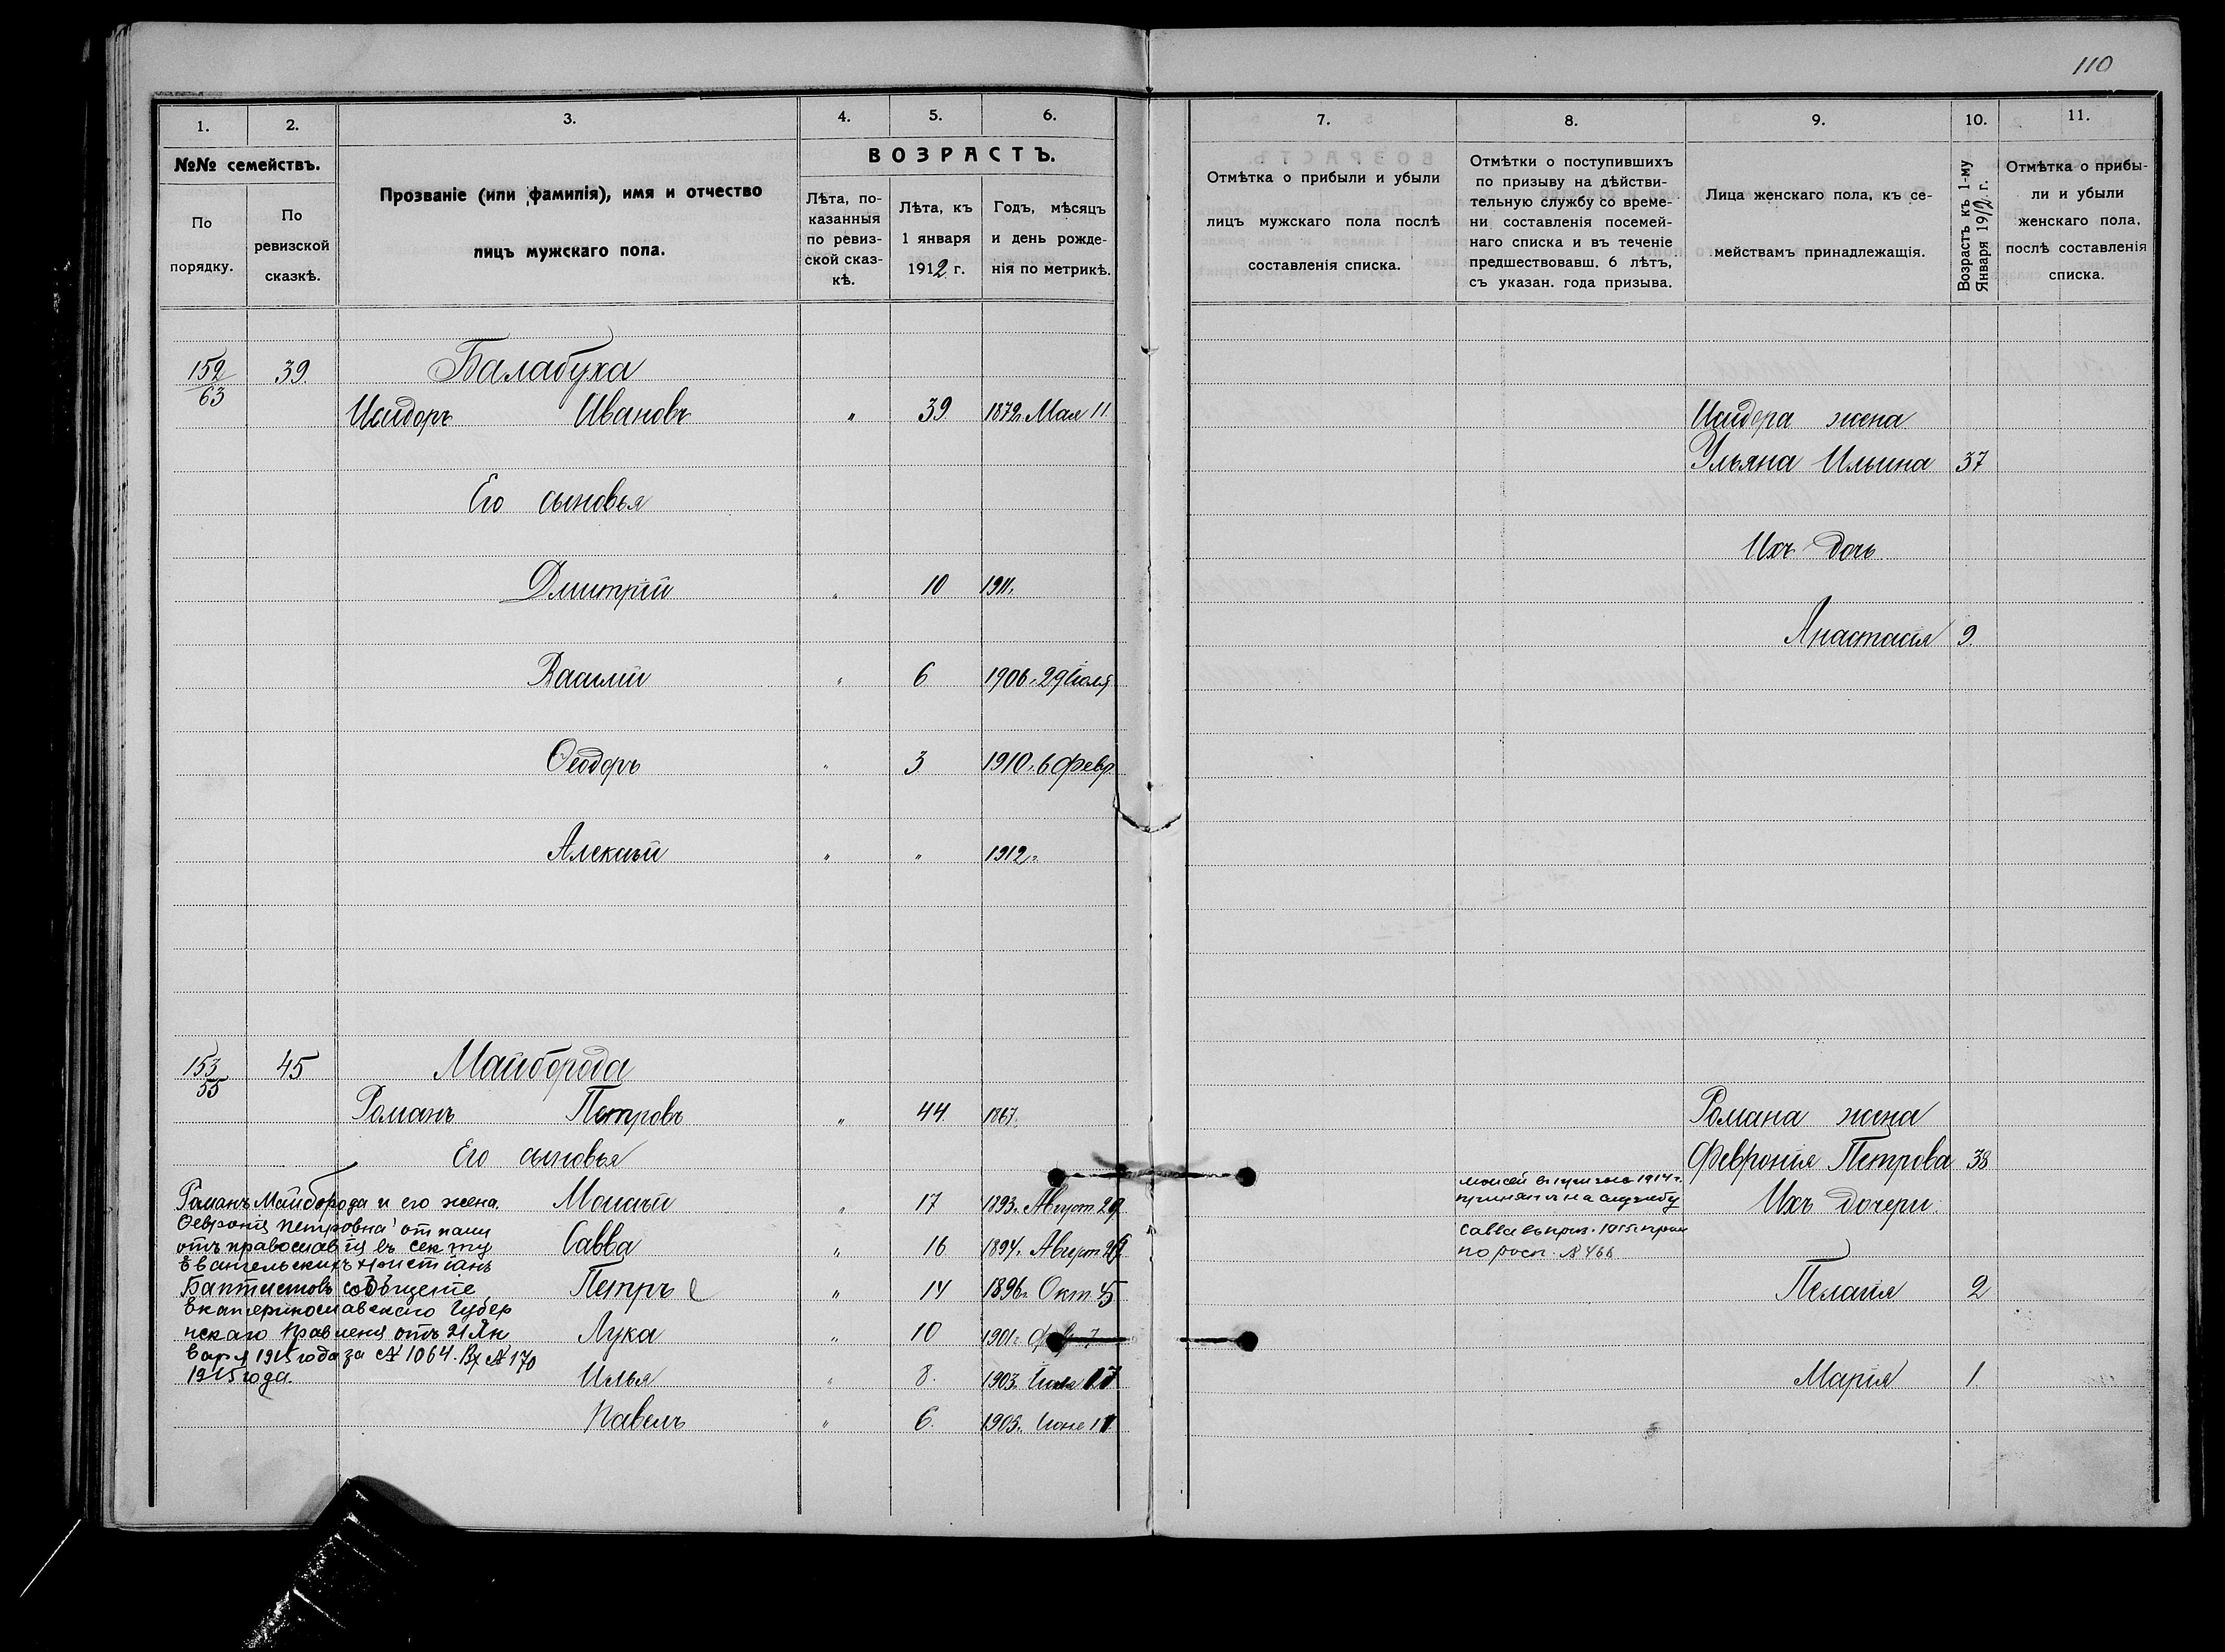 110
1. 2. 3. 4. 5. 6.
№№ семействъ.
По порядку.
По ревизской сказкѣ.
Прозваніе (или фамилія), имя и отчество
лицъ мужскаго пола.
ВОЗРАСТЪ.
Лѣта, по-
казанныя
по ревиз-
ской сказ-
кѣ.
Лѣта, къ
1 января
1912 г.
Годъ, мѣсяцъ
и день рожде-
нія по метрикѣ.
7. 8. 9. 10. 11.
Отмѣтка о прибыли и убыли
лицъ мужскаго пола послѣ
составленія списка.
Отмѣтки о поступившихъ
по призыву на дѣйстви-
тельную службу со време-
ни составленія посемей-
наго списка и въ теченіе
предшествовавш. 6 лѣтъ,
съ указан. года призыва.
Лица женскаго пола, къ се-
мействамъ принадлежащія.
Возрастъ къ 1-му
Января 1912 г.
Отмѣтка о прибы-
ли и убыли
женскаго пола,
послѣ составленія
списка.
152/63 39 Балабуха
Исидоръ Ивановъ " 39 1872г. Мая 11.
Его сыновья
Дмитрій " 10 1911г.
Василій " 6 1906г. 29 Іюля
Ѳеодоръ " 3 1910г. 6 февр.
Алексѣй " " 1912г.
Исидора жена
Ульяна Ильина 37
Ихъ дочь
Анастасія 9.
153/55 45 Майборода
Романъ Петровъ " 44. 1867.
Его сыновья
Моисѣй " 17 1893г. Август. 29
Савва " 16 1894г. Август.
Петръ " 14 1896г. Окт. 5
Лука " 10 1901г.
Илья " 8. 1903г. 17
Павелъ " 6. 1905г. Іюне 11
Романъ Майборода и его жена
Ѳевронія Петровна отпали
отъ православія въ секту
Евангельскихъ Христіанъ
Баптистовъ сообщеніе
Екатеринославскаго Губер
нскаго Правленія отъ 21 Ян
варя 1915 года за № 1064. Вх № 170
1915 года.
Моисей въ 1914 г.
принятъ на службу
Савва въ 1915г.
по росп. № 466
Романа жена
Февронія Петрова 38
Ихъ дочери.
Пелагія 2
Марія 1.